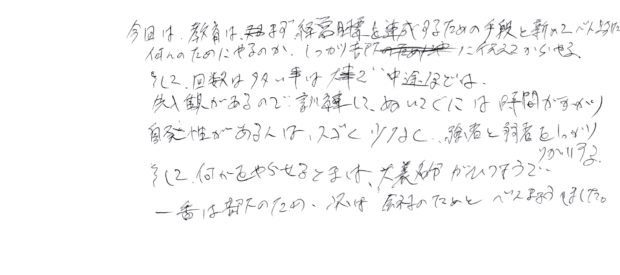 今回は、教育は、まず経営目標を達成するための手段と新めて べんきょうに
何んのためにやるのか、しっかり部下に伝えてからやる
そして、回数は多い事は大事で 中途ぱでは、
先入観があるので訓練して、ぬいてくには時間がかかり
自発性がある人は、スゴく少なく、強者と弱者をしっかり
りかいする。
そして、何かをやらせるときは、大義名分がひつようで
一番は部下のため、次は会社のためと べんきょうしました。